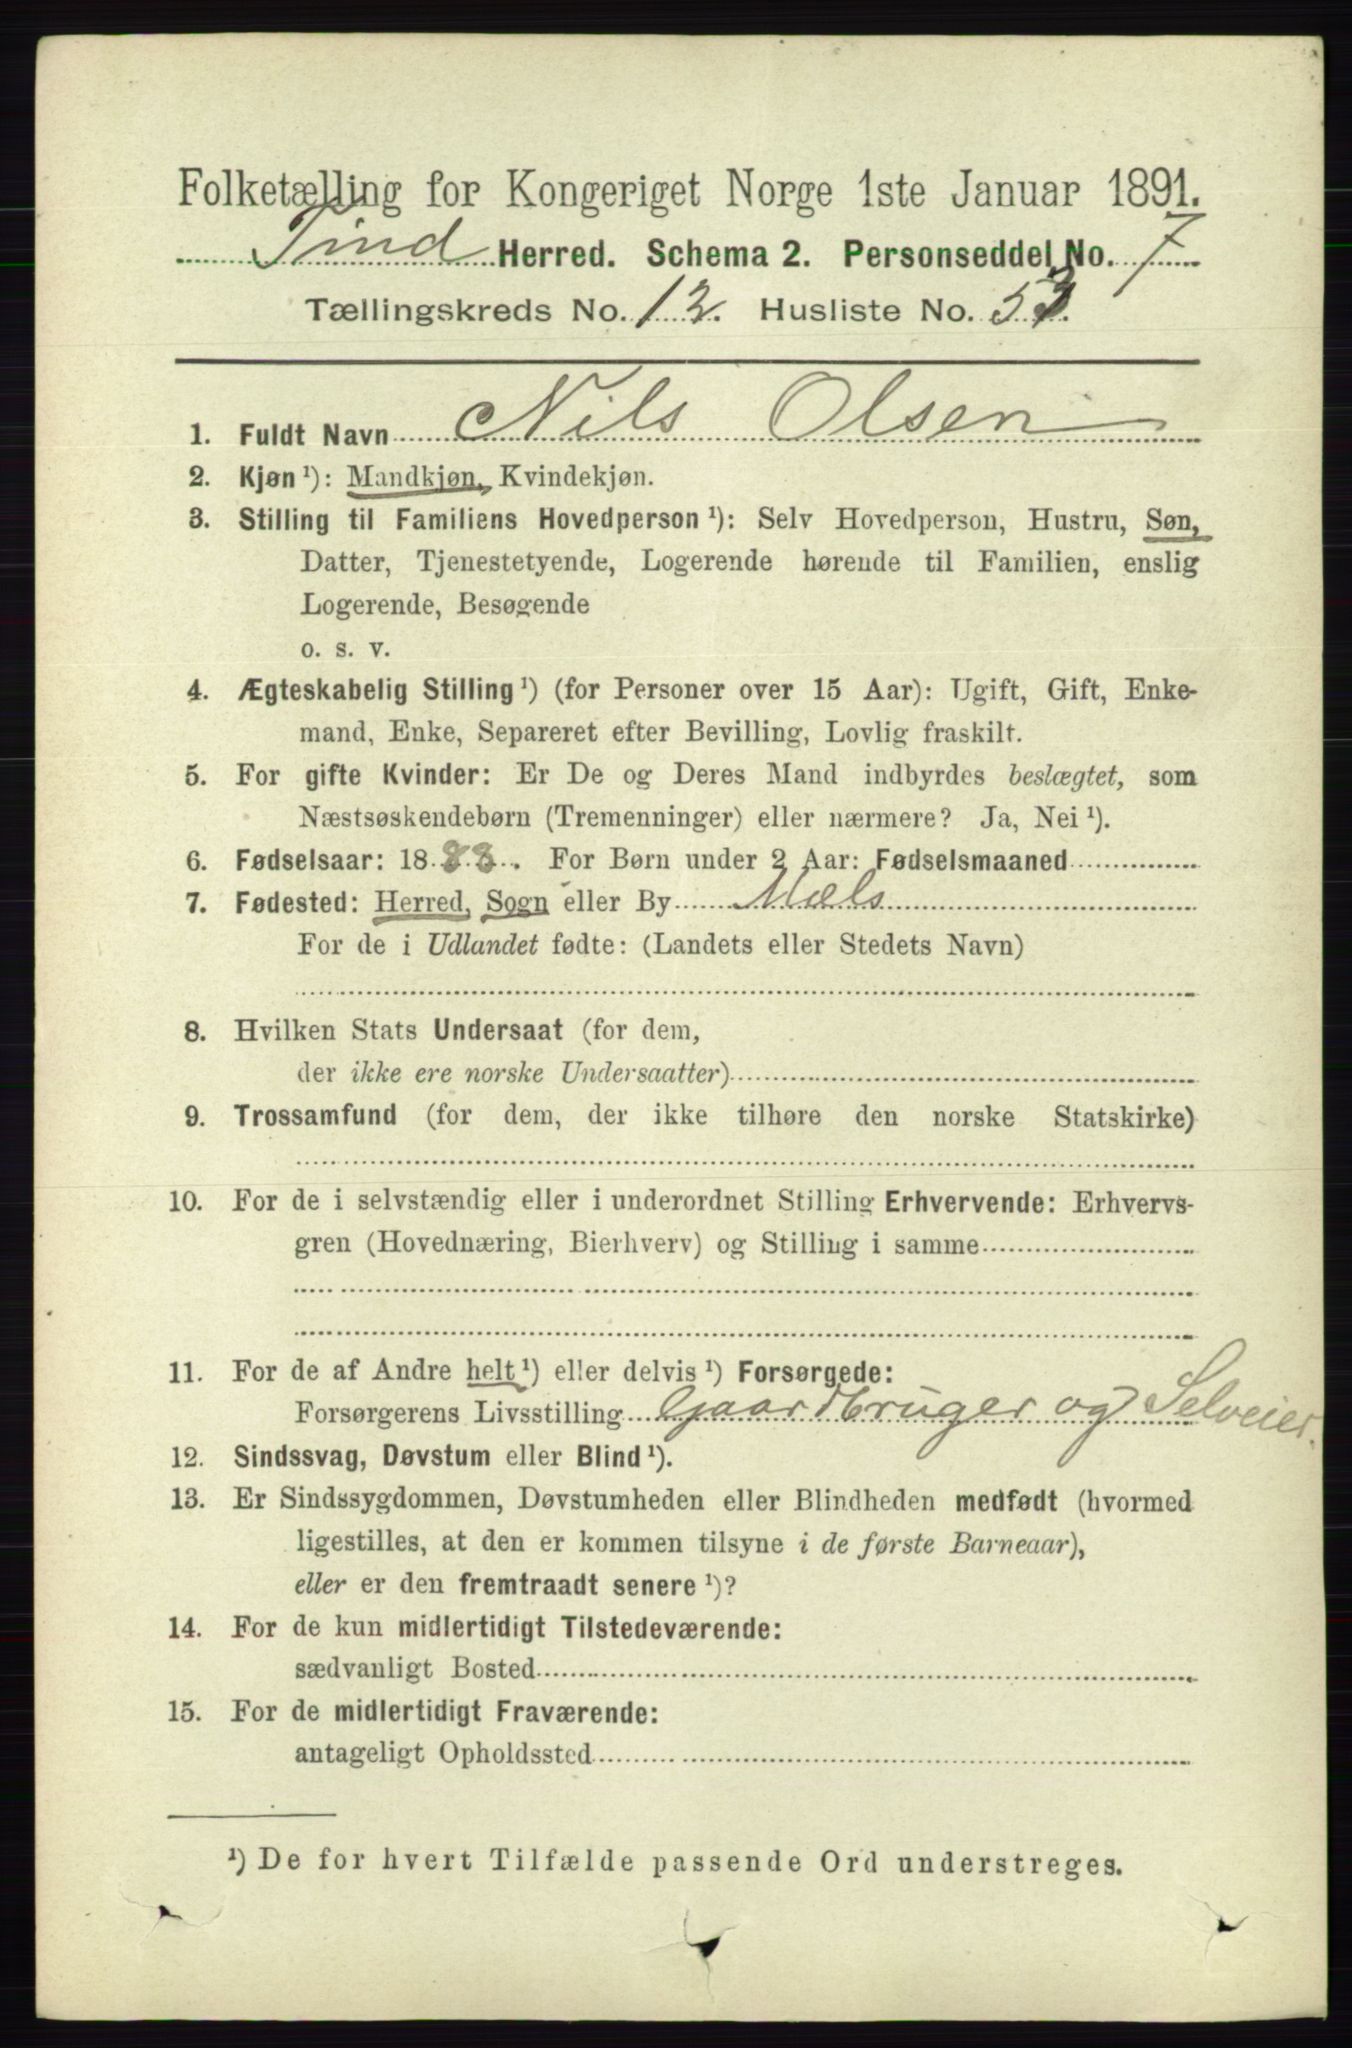 Folketælling for Kongeriget Norge 1ste Januar 1891.
Tind Herred. Schema 2. Personseddel No. 7
Tællingskreds No. 12. Husliste No. 53.
1. Fuldt Navn Nils Olsen
2. Kjøn ¹): Mandkjøn, Kvindekjøn.
3. Stilling til Familiens Hovedperson ¹): Selv Hovedperson, Hustru, Søn,
Datter, Tjenestetyende, Logerende hørende til Familien, enslig
Logerende, Besøgende
o. s. v.
4. Ægteskabelig Stilling ¹) (for Personer over 15 Aar): Ugift, Gift, Enke-
mand, Enke, Separeret efter Bevilling, Lovlig fraskilt.
5. For gifte Kvinder: Er De og Deres Mand indbyrdes beslægtet, som
Næstsøskendebørn (Tremenninger) eller nærmere? Ja, Nei ¹).
6. Fødselsaar: 1888. For Børn under 2 Aar: Fødselsmaaned
7. Fødested: Herred, Sogn eller By Mæls
For de i Udlandet fødte: (Landets eller Stedets Navn)
8. Hvilken Stats Undersaat (for dem,
der ikke ere norske Undersaatter)
9. Trossamfund (for dem, der ikke tilhøre den norske Statskirke)
10. For de i selvstændig eller i underordnet Stilling Erhvervende: Erhvervs-
gren (Hovednæring, Bierhverv) og Stilling i samme
11. For de af Andre helt ¹) eller delvis ¹) Forsørgede:
Forsørgerens Livsstilling Gaardbruger og Selveier.
12. Sindssvag, Døvstum eller Blind ¹).
13. Er Sindssygdommen, Døvstumheden eller Blindheden medfødt (hvormed
ligestilles, at den er kommen tilsyne i de første Barneaar),
eller er den fremtraadt senere ¹)?
14. For de kun midlertidigt Tilstedeværende:
sædvanligt Bosted
15. For de midlertidigt Fraværende:
antageligt Opholdssted
¹) De for hvert Tilfælde passende Ord understreges.